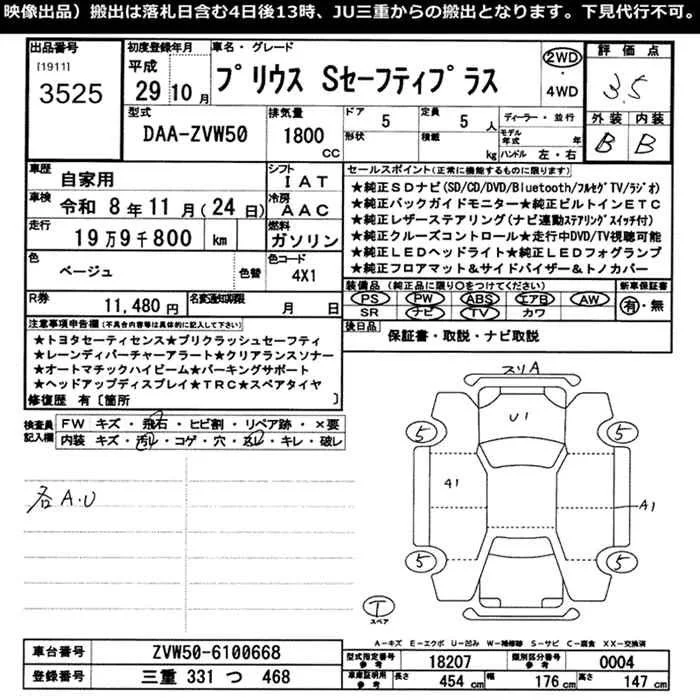 映像出品）搬出は落札日含む4日後13時、JU三重からの搬出となります。下見代行不可。
出品番号
[1911]
3525
初度登録年月
平成
29 10 月
車名・グレード
プリウス Sセーフティプラス
2WD
・
4WD
評価点
3.5
外装 内装
B B
型式
DAA-ZVW50
排気量
1800
CC
ドア
5
形状
定員
5 人
積載
kg
ディーラー・並行
モデル年式 年
ハンドル 左・右
車歴
自家用
シフト
IAT
車検
令和 8年 11月(24日)
冷房
AAC
走行
19万9千800 km
燃料
ガソリン
色
ベージュ
色替
色コード
4X1
R券
11,480 円
名変通知期限
月 日
セールスポイント(正常に機能するものに限ります)
★純正SDナビ(SD/CD/DVD/Bluetooth/フルセグTV/ラジオ)
★純正バックガイドモニター★純正ビルトインETC
★純正レザーステアリング(ナビ連動ステアリングスイッチ付)
★純正クルーズコントロール★走行中DVD/TV視聴可能
★純正LEDヘッドライト★純正LEDフォグランプ
★純正フロアマット&サイドバイザー&トノカバー
装備品 (純正品に限り○をつけてください)
PS PW ABS エアB AW
SR ナビ TV カワ
新車保証書
有・無
後日品
保証書・取説・ナビ取説
注意事項申告欄(不具合内容等は具体的に記入して下さい)
★トヨタセーティセンス★プリクラッシュセーフティ
★レーンディパーチャーアラート★クリアランスソナー
★オートマチックハイビーム★パーキングサポート
★ヘッドアップディスプレイ★TRC★スペアタイヤ
修復歴 有〔箇所 〕
検査員記入欄
FW キズ・飛石・ヒビ割・リペア跡・×要
内装 キズ・汚レ・コゲ・穴・スレ・キレ・破レ
各A.U
スリA
U1
5
5
A1
A1
5
5
T
スペア
A-キズ E-エクボ U-凹み W-補修跡 S-サビ C-腐食 XX-交換済
車台番号
ZVW50-6100668
登録番号
三重 331 つ 468
型式指定番号
参考
18207
類別区分番号
参考
0004
車庫証明用
参考
長さ
454 cm
幅
176 cm
高さ
147 cm